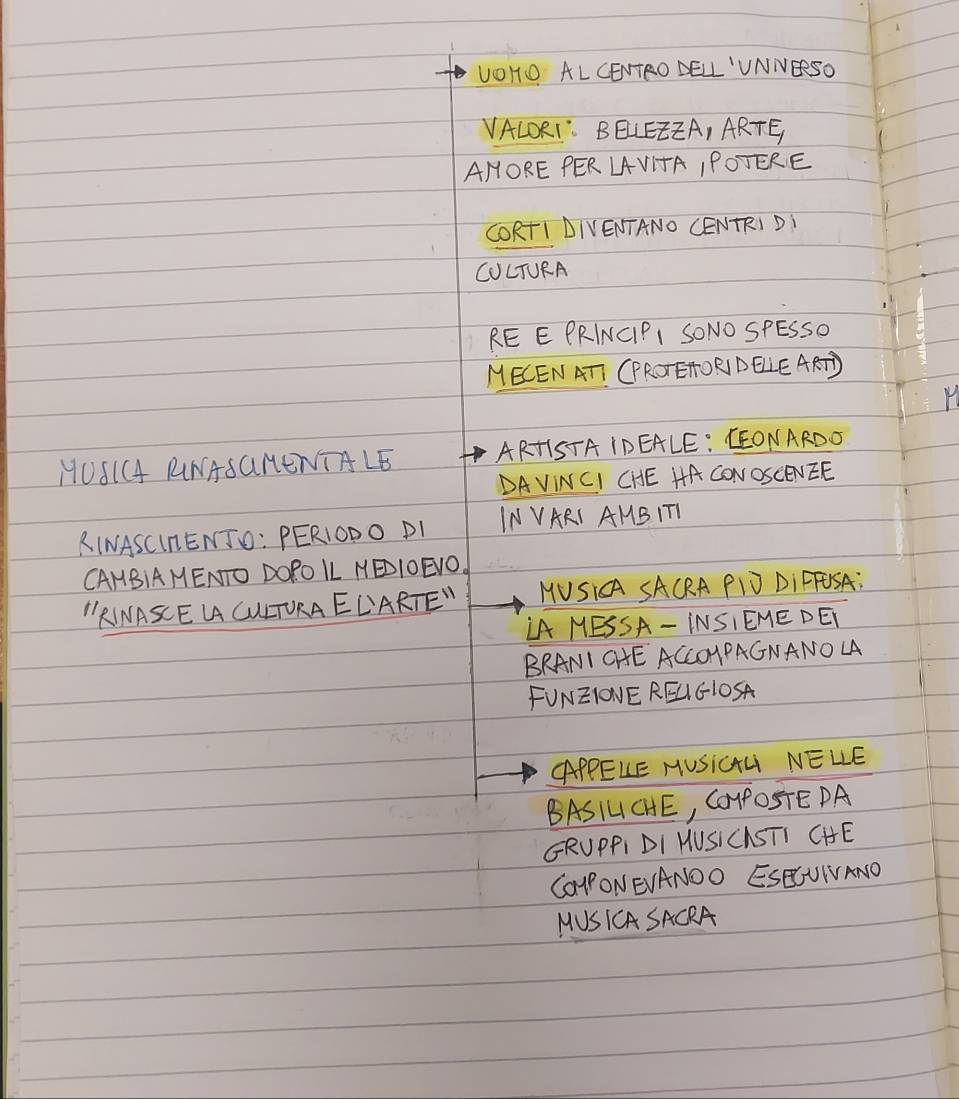 UOMO AL CENTRO DELL'UNIVERSO
VALORI: BELLEZZA, ARTE,
AMORE PER LA VITA, POTERE
CORTI DIVENTANO CENTRI DI
CULTURA
RE E PRINCIPI SONO SPESSO
MECENATI (PROTETTORI DELLE ARTI)
MUSICA RINASCIMENTALE
RINASCIMENTO: PERIODO DI
CAMBIAMENTO DOPO IL MEDIOEVO.
"RINASCE LA CULTURA E L'ARTE"
ARTISTA IDEALE: LEONARDO
DA VINCI CHE HA CONOSCENZE
IN VARI AMBITI
MUSICA SACRA PIÙ DIFFUSA:
LA MESSA - INSIEME DEI
BRANI CHE ACCOMPAGNANO LA
FUNZIONE RELIGIOSA
CAPPELLE MUSICALI NELLE
BASILICHE, COMPOSTE DA
GRUPPI DI MUSICISTI CHE
COMPONEVANO O ESEGUIVANO
MUSICA SACRA
M